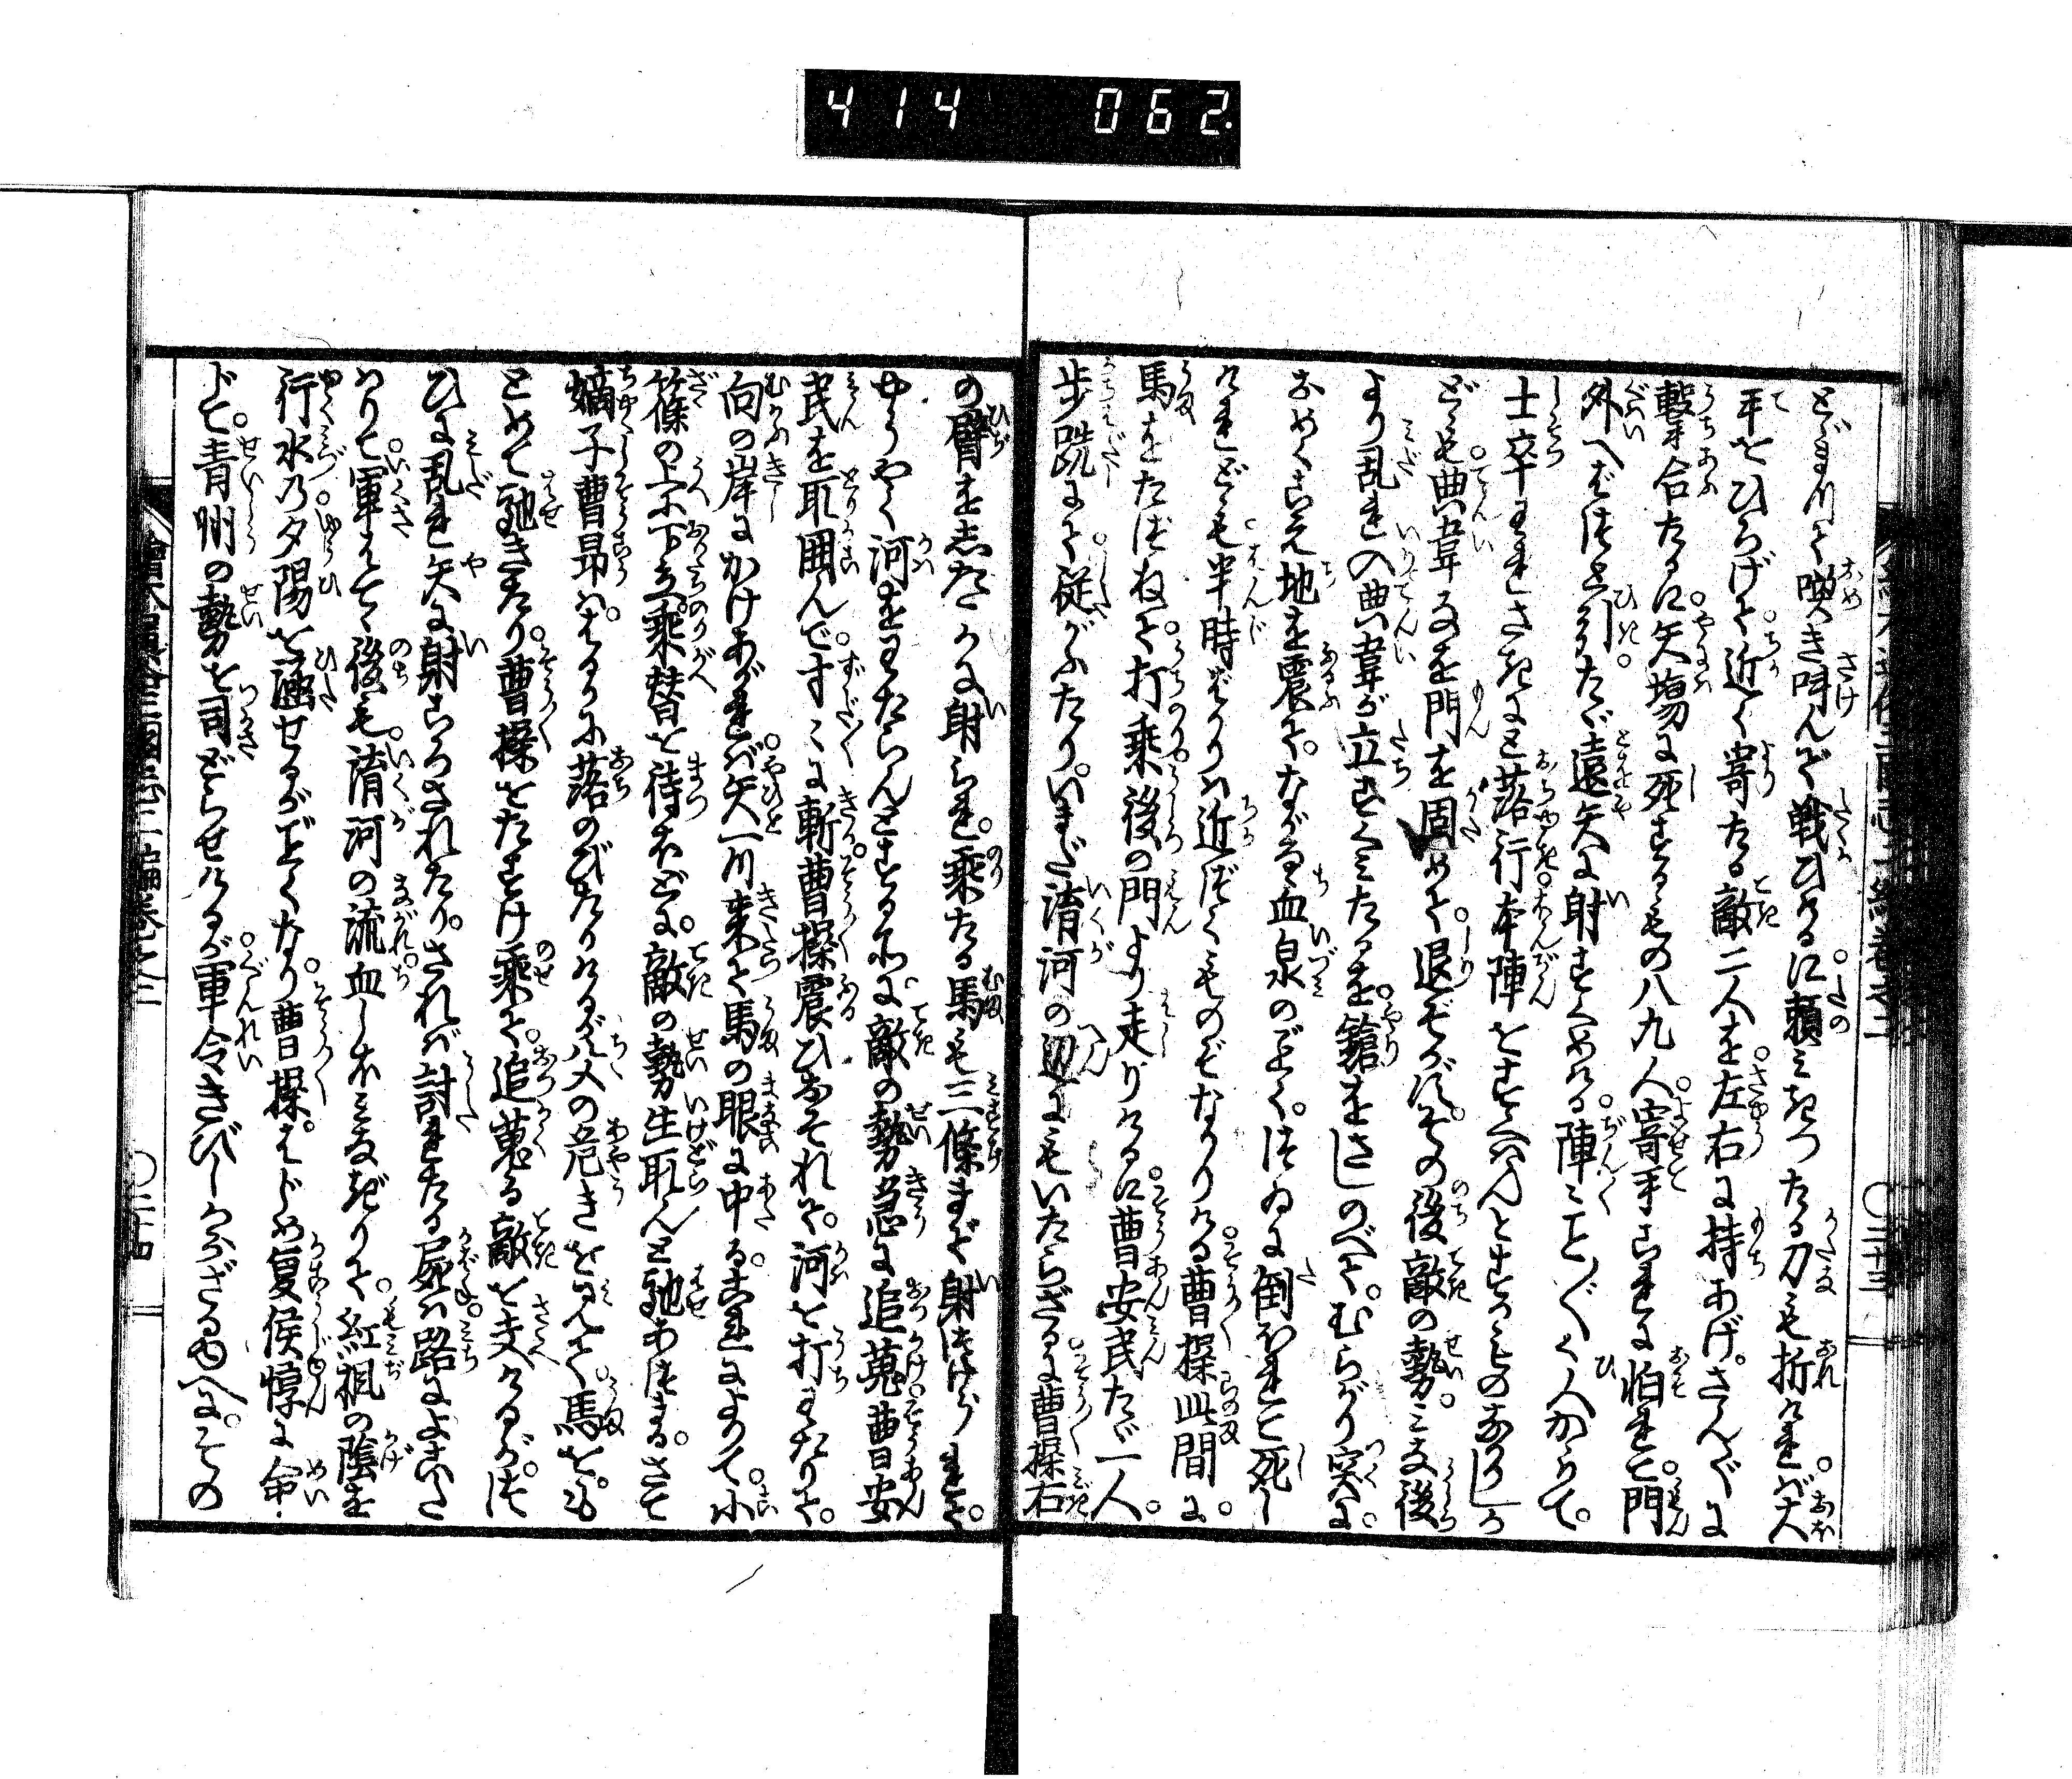 414 062
とゞまりて喚き叫んで戦ひけるに頼みきつたる刀も折ければ大
手をひろげて近く寄たる敵二人を左右に持あげさん〴〵に
撃合たるに矢場に死するもの八九人寄手これに怕れて門
外へばつと引たゞ遠矢に射すくめける陣〻こと〴〵く人かゝりて
士卒われさきにと落行本陣をすくはんとするものあらじか
ども典韋なを門を固めて退ぞかずその後敵の勢みな後
より乱れ入典韋が立すくみたるを鎗をさしのべてむらがり突に
おめくこえ地を震てながるゝ血泉のごとくつゐに倒れて死し
けれども半時ばかりは近づくものぞなかりける曹操此間に
馬をたづねて打乗後の門より走りけるに曹安民たゞ一人
歩跣にて従がふたりいまだ淯河の辺にもいたらざるに曹操右
の臂をしたゝかに射られ乗たる馬も三條まで射つけられて
やうやく河をわたらんとする所に敵の勢急に追蒐曹安
民を取囲んですだ〳〵に斬曹操震ひおそれて河を打わたりて
向の岸にかけあがれば矢一ツ来て馬の眼に中るこれによりて小
篠の上に下立乗替を待ほどに敵の勢生取んと馳あつまるさて
嫡子曹昴ははるかに落のびたりけるが父の危きをみて馬をも
とめて馳きたり曹操をたすけ乗て追蒐る敵を支へけるがつ
ひに乱れ矢に射ころされたりされば討れたる屍は路によこた
はりて軍はてゝ後も淯河の流血しほみなぎりて紅楓の陰を
行水の夕陽を涵せるがごとくなり曹操はじめ夏侯惇に命
じて青州の勢を司どらせけるが軍令きびしからざるゆへにその
繪本通俗三國志二編巻之二
〇二十三
〇二十四